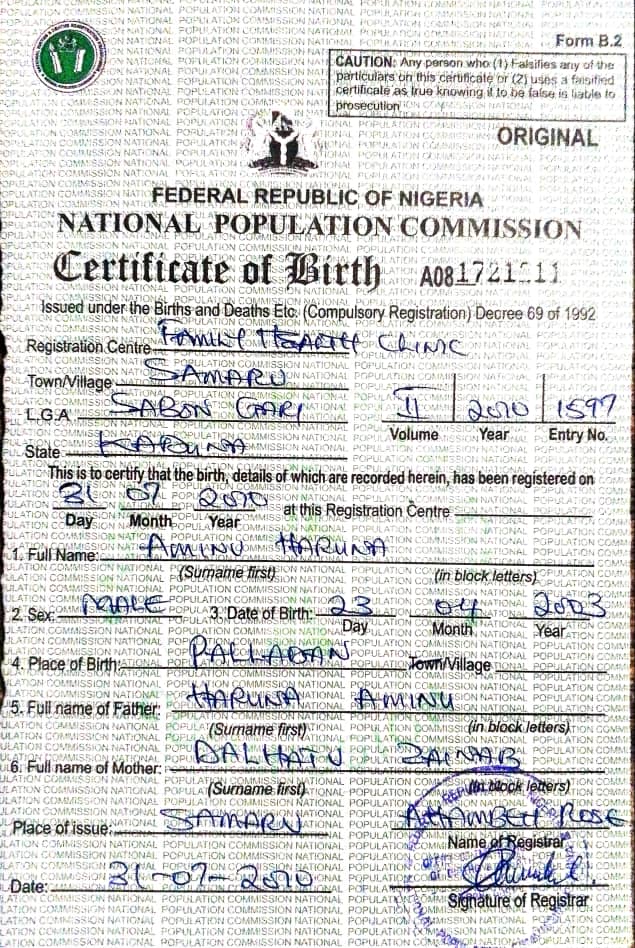 Form B.2
CAUTION: Any person who (1) Falsifies any of the
particulars on this certificate or (2) uses a falsified
certificate as true knowing it to be false is liable to
prosecution
ORIGINAL
FEDERAL REPUBLIC OF NIGERIA
NATIONAL POPULATION COMMISSION
Certificate of Birth
Issued under the Births and Deaths Etc. (Compulsory Registration) Decree 69 of 1992
Registration Centre FAMILY HEALTH CLINIC
Town/Village SAMARU
L.G.A. SABON GARI II 2010 1597
Volume Year Entry No.
State KADUNA
This is to certify that the birth, details of which are recorded herein, has been registered on
31 07 2010 at this Registration Centre
Day Month Year
1. Full Name: AMINU HARUNA
(Surname first) (in block letters)
2. Sex: MALE 3. Date of Birth: 23 04 2003
Day Month Year
4. Place of Birth: PALLADAN Town/Village
5. Full name of Father: HARUNA AMINU
(Surname first) (in block letters)
6. Full name of Mother: DALHATU ZAINAB
(Surname first) (in block letters)
Place of issue: SAMARU ROSE
Name of Registrar
Date: 31-07-2010
Signature of Registrar